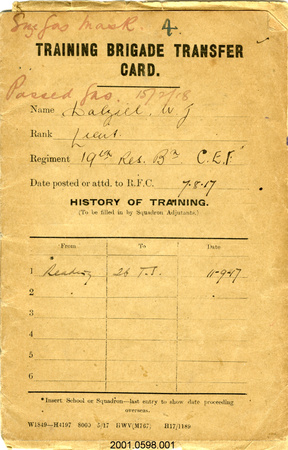 Sm Gas Mask. 4
TRAINING BRIGADE TRANSFER
CARD.
Passed Gas 15/2/18
Name Dalziel. W J
Rank Lieut.
Regiment 19th Res. Bn C.E.F.
Date posted or attd. to R.F.C. 7-8-17
HISTORY OF TRAINING.
(To be filled in by Squadron Adjutants.)
From To Date
1 Reading 26 T.S. 11-9-17
2
3
4
5
6
* Insert School or Squadron—last entry to show date proceeding
overseas.
W1849—H4197 8000 5/17 HWV(M767) H17/1189
2001.0598.001